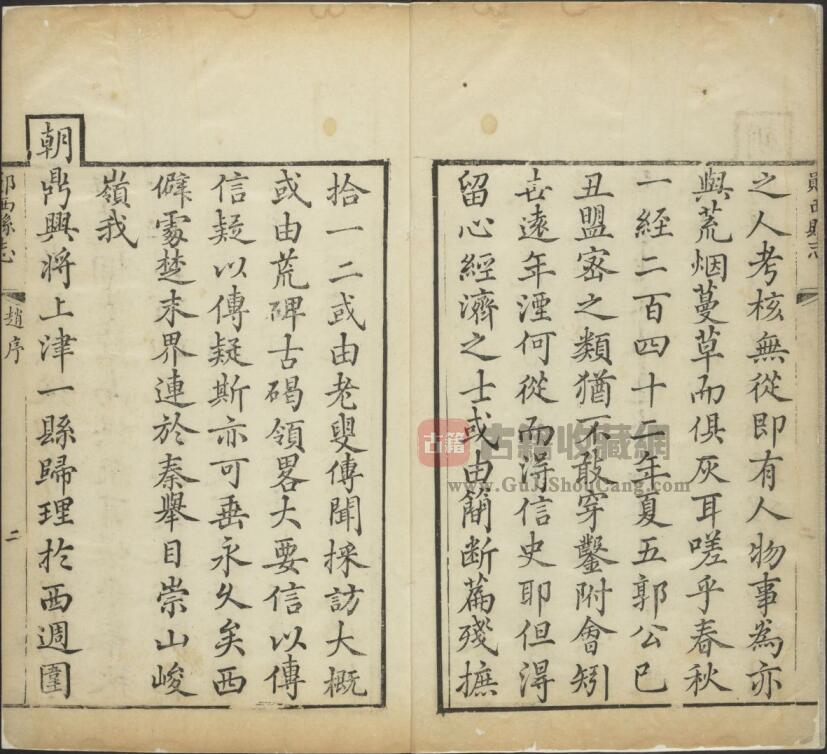 鄖西縣志
之人考核無從即有人物事為亦
與荒烟蔓草而俱灰耳嗟乎春秋
一經二百四十二年夏五郭公已
丑盟宻之類猶不敢穿鑿附會矧
世遠年湮何從而淂信史耶但淂
留心經濟之士或由簡断篇殘摭
拾一二或由老叟傳聞採訪大概
或由荒碑古碣領畧大要信以傳
信疑以傳疑斯亦可垂永久矣西
僻䖏楚末界連於秦舉目崇山峻
嶺我
朝鼎興将上津一縣歸理於西週圍
鄖西縣志 趙序 二
古籍 古籍收藏網
www.GuJiShouCang.com